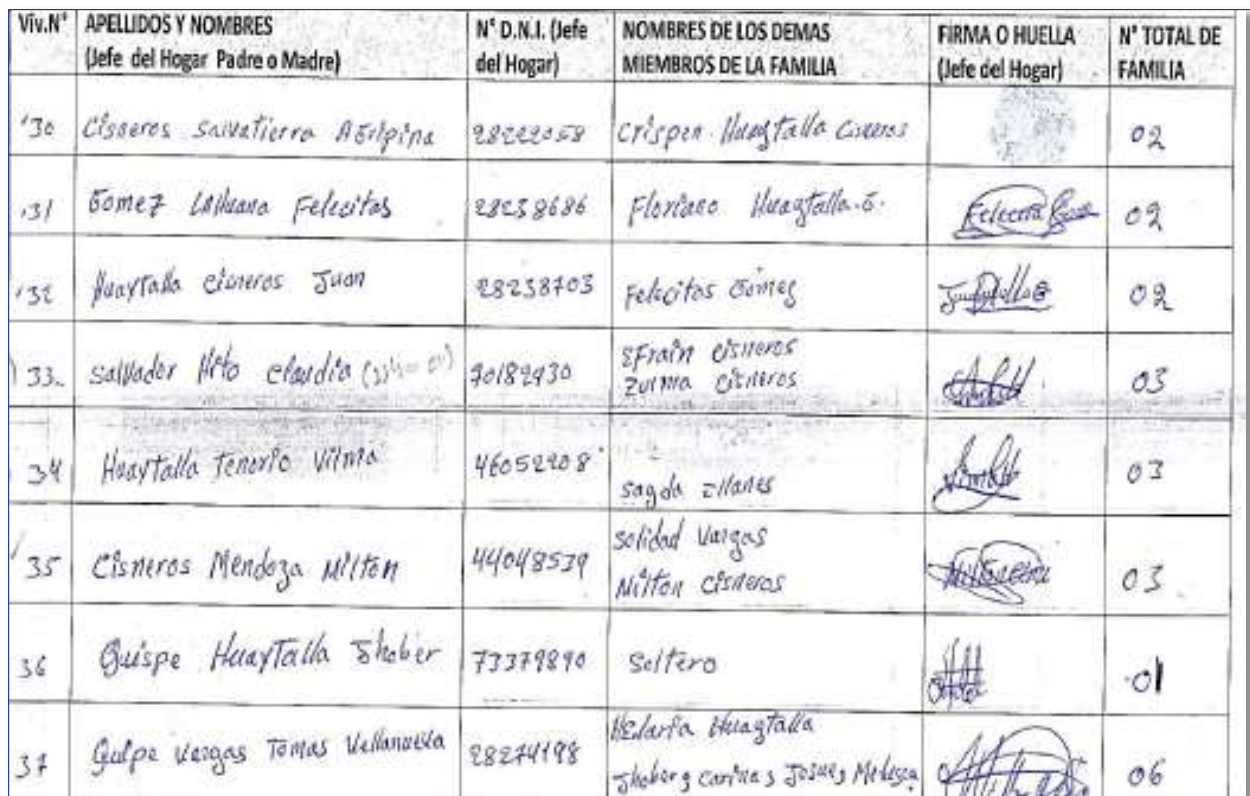 Viv.N° APELLIDOS Y NOMBRES (Jefe del Hogar Padre o Madre) N° D.N.I. (Jefe del Hogar) NOMBRES DE LOS DEMAS MIEMBROS DE LA FAMILIA FIRMA O HUELLA (Jefe del Hogar) N° TOTAL DE FAMILIA
30 Cisneros Salvatierra Agripina 28222058 Crispen Huaytalla Cisneros 02
31 Gomez Felecitas 28238686 Floriano Huaytalla.G. 02
32 Huaytalla Cisneros Juan 28238703 Felecitas Gomez 02
33. Salvador Claudia 70182930 Efrain Cisneros 03
Zulma Cisneros
34 Huaytalla Tenorio Vilma 46052208 Sagda Illanes 03
35 Cisneros Mendoza Milton 44048539 Solidad Vargas 03
Milton Cisneros
36 Quispe Huaytalla Jhober 73379890 Soltero 01
37 Vargas Tomas 28274198 Huaytalla 06
Jhober y Josue y